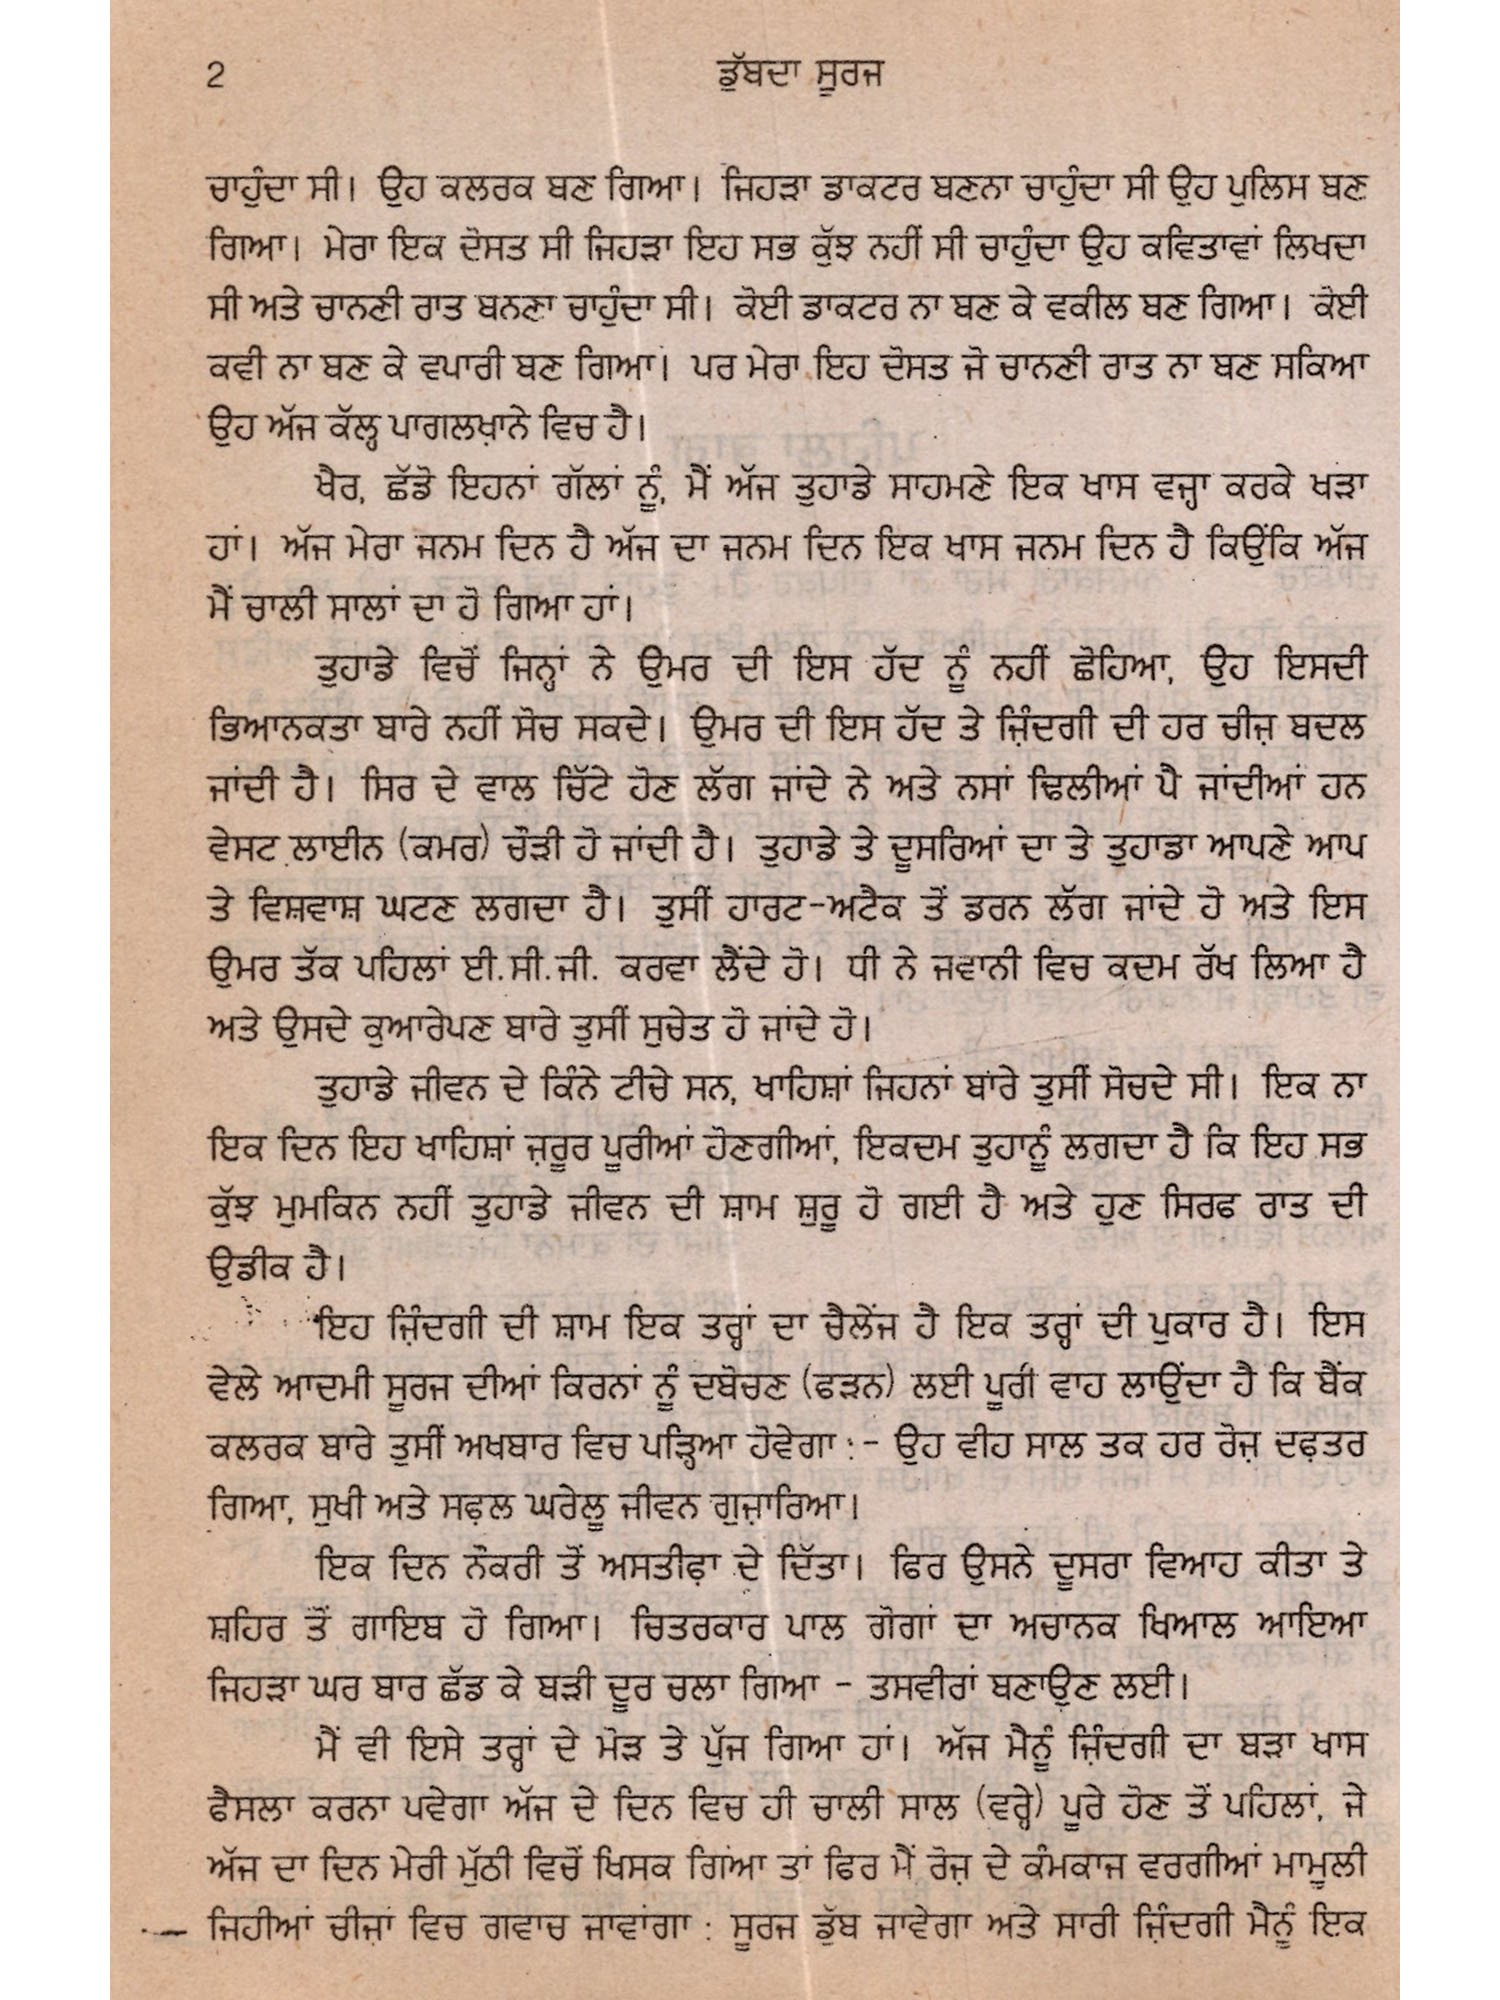 2
ਡੁੱਬਦਾ ਸੂਰਜ
ਚਾਹੁੰਦਾ ਸੀ। ਉਹ ਕਲਰਕ ਬਣ ਗਿਆ। ਜਿਹੜਾ ਡਾਕਟਰ ਬਣਨਾ ਚਾਹੁੰਦਾ ਸੀ ਉਹ ਪੁਲਿਸ ਬਣ
ਗਿਆ। ਮੇਰਾ ਇਕ ਦੋਸਤ ਸੀ ਜਿਹੜਾ ਇਹ ਸਭ ਕੁੱਝ ਨਹੀਂ ਸੀ ਚਾਹੁੰਦਾ ਉਹ ਕਵਿਤਾਵਾਂ ਲਿਖਦਾ
ਸੀ ਅਤੇ ਚਾਨਣੀ ਰਾਤ ਬਨਣਾ ਚਾਹੁੰਦਾ ਸੀ। ਕੋਈ ਡਾਕਟਰ ਨਾ ਬਣ ਕੇ ਵਕੀਲ ਬਣ ਗਿਆ। ਕੋਈ
ਕਵੀ ਨਾ ਬਣ ਕੇ ਵਪਾਰੀ ਬਣ ਗਿਆ। ਪਰ ਮੇਰਾ ਇਹ ਦੋਸਤ ਜੋ ਚਾਨਣੀ ਰਾਤ ਨਾ ਬਣ ਸਕਿਆ
ਉਹ ਅੱਜ ਕੱਲ੍ਹ ਪਾਗਲਖ਼ਾਨੇ ਵਿਚ ਹੈ।
ਖੈਰ, ਛੱਡੋ ਇਹਨਾਂ ਗੱਲਾਂ ਨੂੰ, ਮੈਂ ਅੱਜ ਤੁਹਾਡੇ ਸਾਹਮਣੇ ਇਕ ਖਾਸ ਵਜ੍ਹਾ ਕਰਕੇ ਖੜਾ
ਹਾਂ। ਅੱਜ ਮੇਰਾ ਜਨਮ ਦਿਨ ਹੈ ਅੱਜ ਦਾ ਜਨਮ ਦਿਨ ਇਕ ਖਾਸ ਜਨਮ ਦਿਨ ਹੈ ਕਿਉਂਕਿ ਅੱਜ
ਮੈਂ ਚਾਲੀ ਸਾਲਾਂ ਦਾ ਹੋ ਗਿਆ ਹਾਂ।
ਤੁਹਾਡੇ ਵਿਚੋਂ ਜਿਨ੍ਹਾਂ ਨੇ ਉਮਰ ਦੀ ਇਸ ਹੱਦ ਨੂੰ ਨਹੀਂ ਛੋਹਿਆ, ਉਹ ਇਸਦੀ
ਭਿਆਨਕਤਾ ਬਾਰੇ ਨਹੀਂ ਸੋਚ ਸਕਦੇ। ਉਮਰ ਦੀ ਇਸ ਹੱਦ ਤੇ ਜ਼ਿੰਦਗੀ ਦੀ ਹਰ ਚੀਜ਼ ਬਦਲ
ਜਾਂਦੀ ਹੈ। ਸਿਰ ਦੇ ਵਾਲ ਚਿੱਟੇ ਹੋਣ ਲੱਗ ਜਾਂਦੇ ਨੇ ਅਤੇ ਨਸਾਂ ਢਿਲੀਆਂ ਪੈ ਜਾਂਦੀਆਂ ਹਨ
ਵੇਸਟ ਲਾਈਨ (ਕਮਰ) ਚੌੜੀ ਹੋ ਜਾਂਦੀ ਹੈ। ਤੁਹਾਡੇ ਤੇ ਦੂਸਰਿਆਂ ਦਾ ਤੇ ਤੁਹਾਡਾ ਆਪਣੇ ਆਪ
ਤੇ ਵਿਸ਼ਵਾਸ਼ ਘਟਣ ਲਗਦਾ ਹੈ। ਤੁਸੀਂ ਹਾਰਟ-ਅਟੈਕ ਤੋਂ ਡਰਨ ਲੱਗ ਜਾਂਦੇ ਹੋ ਅਤੇ ਇਸ
ਉਮਰ ਤੱਕ ਪਹਿਲਾਂ ਈ.ਸੀ.ਜੀ. ਕਰਵਾ ਲੈਂਦੇ ਹੋ। ਧੀ ਨੇ ਜਵਾਨੀ ਵਿਚ ਕਦਮ ਰੱਖ ਲਿਆ ਹੈ
ਅਤੇ ਉਸਦੇ ਕੁਆਰੇਪਣ ਬਾਰੇ ਤੁਸੀਂ ਸੁਚੇਤ ਹੋ ਜਾਂਦੇ ਹੋ।
ਤੁਹਾਡੇ ਜੀਵਨ ਦੇ ਕਿੰਨੇ ਟੀਚੇ ਸਨ, ਖਾਹਿਸ਼ਾਂ ਜਿਹਨਾਂ ਬਾਰੇ ਤੁਸੀਂ ਸੋਚਦੇ ਸੀ। ਇਕ ਨਾ
ਇਕ ਦਿਨ ਇਹ ਖਾਹਿਸ਼ਾਂ ਜ਼ਰੂਰ ਪੂਰੀਆਂ ਹੋਣਗੀਆਂ, ਇਕਦਮ ਤੁਹਾਨੂੰ ਲਗਦਾ ਹੈ ਕਿ ਇਹ ਸਭ
ਕੁੱਝ ਮੁਮਕਿਨ ਨਹੀਂ ਤੁਹਾਡੇ ਜੀਵਨ ਦੀ ਸ਼ਾਮ ਸ਼ੁਰੂ ਹੋ ਗਈ ਹੈ ਅਤੇ ਹੁਣ ਸਿਰਫ ਰਾਤ ਦੀ
ਉਡੀਕ ਹੈ।
ਇਹ ਜ਼ਿੰਦਗੀ ਦੀ ਸ਼ਾਮ ਇਕ ਤਰ੍ਹਾਂ ਦਾ ਚੈਲੇਂਜ ਹੈ ਇਕ ਤਰ੍ਹਾਂ ਦੀ ਪੁਕਾਰ ਹੈ। ਇਸ
ਵੇਲੇ ਆਦਮੀ ਸੂਰਜ ਦੀਆਂ ਕਿਰਨਾਂ ਨੂੰ ਦਬੋਚਣ (ਫੜਨ) ਲਈ ਪੂਰੀ ਵਾਹ ਲਾਉਂਦਾ ਹੈ ਕਿ ਬੈਂਕ
ਕਲਰਕ ਬਾਰੇ ਤੁਸੀਂ ਅਖਬਾਰ ਵਿਚ ਪੜ੍ਹਿਆ ਹੋਵੇਗਾ :- ਉਹ ਵੀਹ ਸਾਲ ਤਕ ਹਰ ਰੋਜ਼ ਦਫ਼ਤਰ
ਗਿਆ, ਸੁਖੀ ਅਤੇ ਸਫ਼ਲ ਘਰੇਲੂ ਜੀਵਨ ਗੁਜ਼ਾਰਿਆ।
ਇਕ ਦਿਨ ਨੌਕਰੀ ਤੋਂ ਅਸਤੀਫ਼ਾ ਦੇ ਦਿੱਤਾ। ਫਿਰ ਉਸਨੇ ਦੂਸਰਾ ਵਿਆਹ ਕੀਤਾ ਤੇ
ਸ਼ਹਿਰ ਤੋਂ ਗਾਇਬ ਹੋ ਗਿਆ। ਚਿਤਰਕਾਰ ਪਾਲ ਗੋਗਾਂ ਦਾ ਅਚਾਨਕ ਖਿਆਲ ਆਇਆ
ਜਿਹੜਾ ਘਰ ਬਾਰ ਛੱਡ ਕੇ ਬੜੀ ਦੂਰ ਚਲਾ ਗਿਆ - ਤਸਵੀਰਾਂ ਬਣਾਉਣ ਲਈ।
ਮੈਂ ਵੀ ਇਸੇ ਤਰ੍ਹਾਂ ਦੇ ਮੋੜ ਤੇ ਪੁੱਜ ਗਿਆ ਹਾਂ। ਅੱਜ ਮੈਨੂੰ ਜ਼ਿੰਦਗੀ ਦਾ ਬੜਾ ਖਾਸ
ਫੈਸਲਾ ਕਰਨਾ ਪਵੇਗਾ ਅੱਜ ਦੇ ਦਿਨ ਵਿਚ ਹੀ ਚਾਲੀ ਸਾਲ (ਵਰ੍ਹੇ) ਪੂਰੇ ਹੋਣ ਤੋਂ ਪਹਿਲਾਂ, ਜੇ
ਅੱਜ ਦਾ ਦਿਨ ਮੇਰੀ ਮੁੱਠੀ ਵਿਚੋਂ ਖਿਸਕ ਗਿਆ ਤਾਂ ਫਿਰ ਮੈਂ ਰੋਜ਼ ਦੇ ਕੰਮਕਾਜ ਵਰਗੀਆਂ ਮਾਮੂਲੀ
ਜਿਹੀਆਂ ਚੀਜ਼ਾਂ ਵਿਚ ਗਵਾਚ ਜਾਵਾਂਗਾ : ਸੂਰਜ ਡੁੱਬ ਜਾਵੇਗਾ ਅਤੇ ਸਾਰੀ ਜ਼ਿੰਦਗੀ ਮੈਨੂੰ ਇਕ